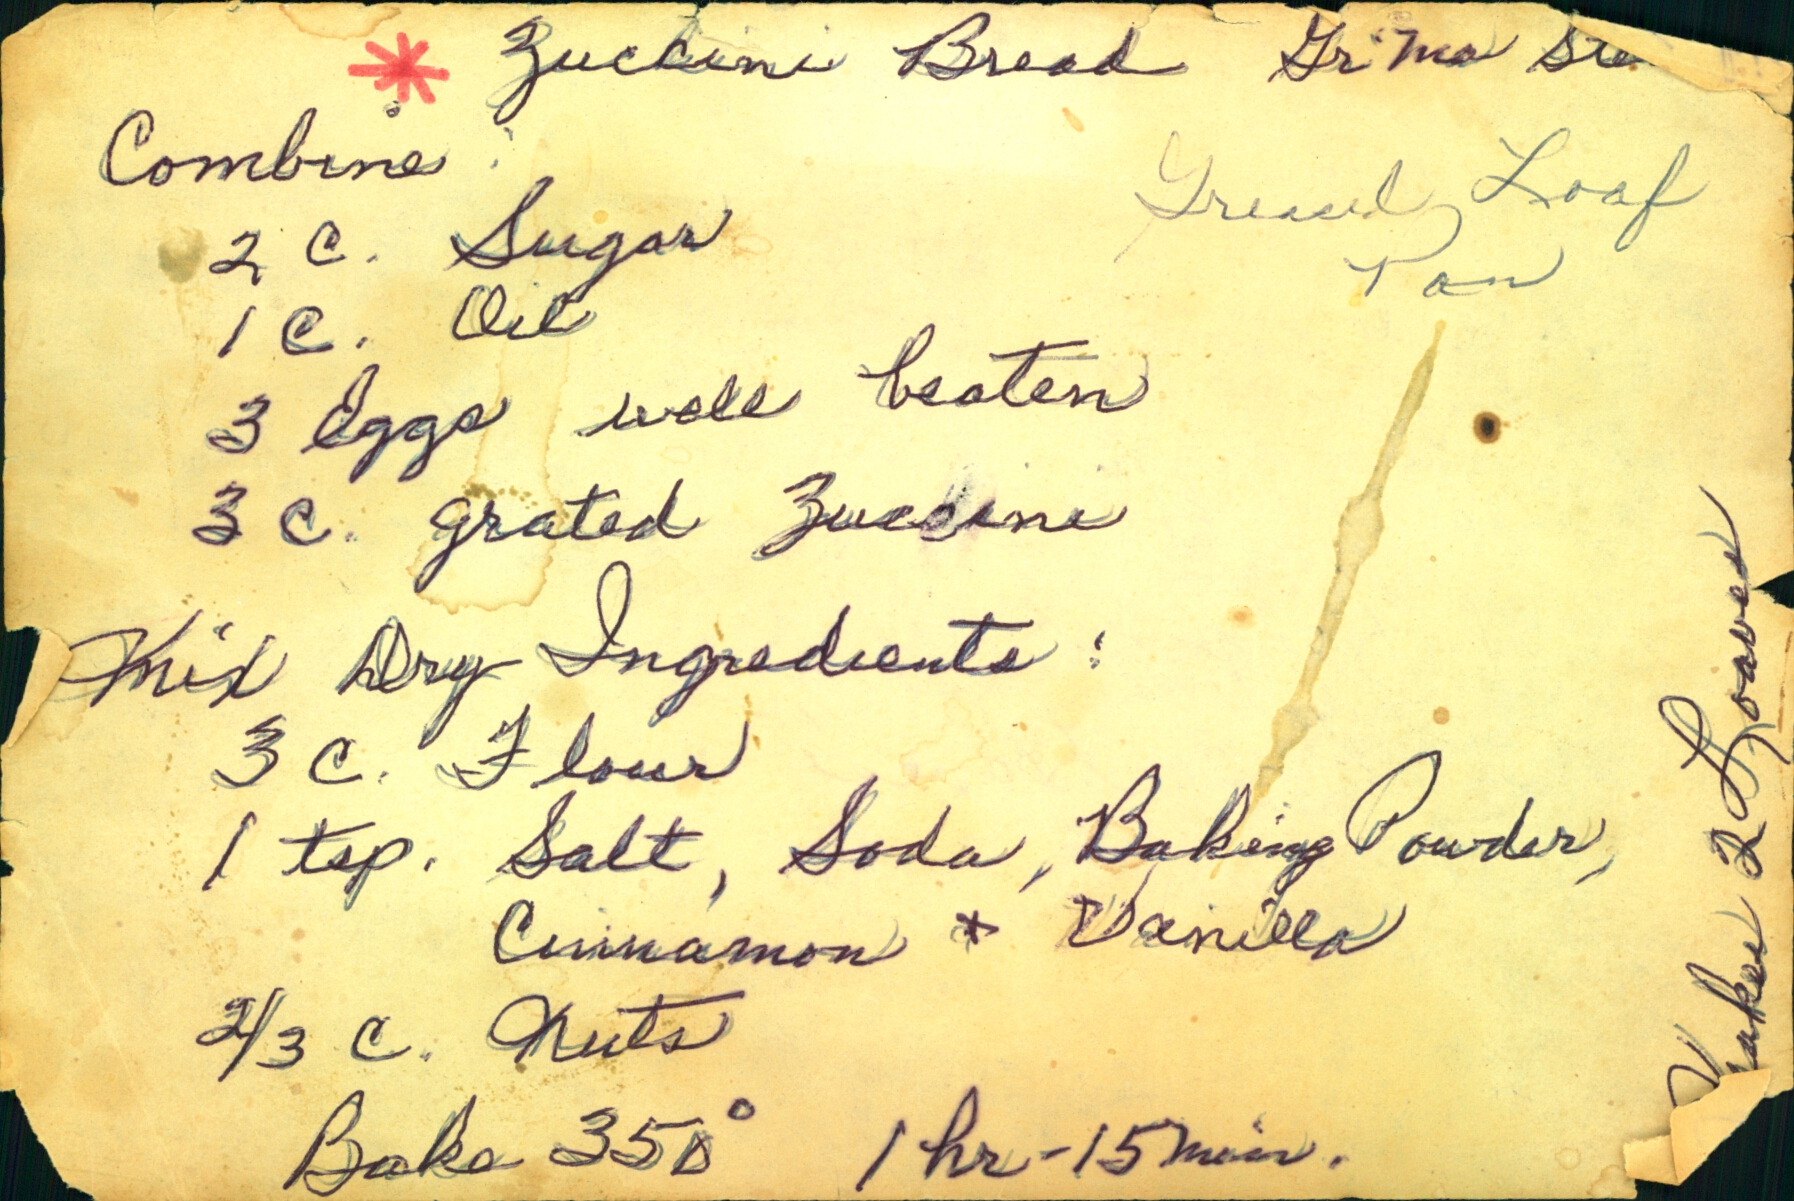 Zuccini Bread Gr'Ma
Combine:
Greased Loaf
Pan
2 C. Sugar
1 C. Oil
3 Eggs well beaten
3 C. grated Zuccini
Mix Dry Ingredients:
3 C. Flour
1 tsp. Salt, Soda, Baking Powder,
Cinnamon + Vanilla
2/3 C. Nuts
Bake 350° 1 hr-15 min.
Makes 2 Loaves